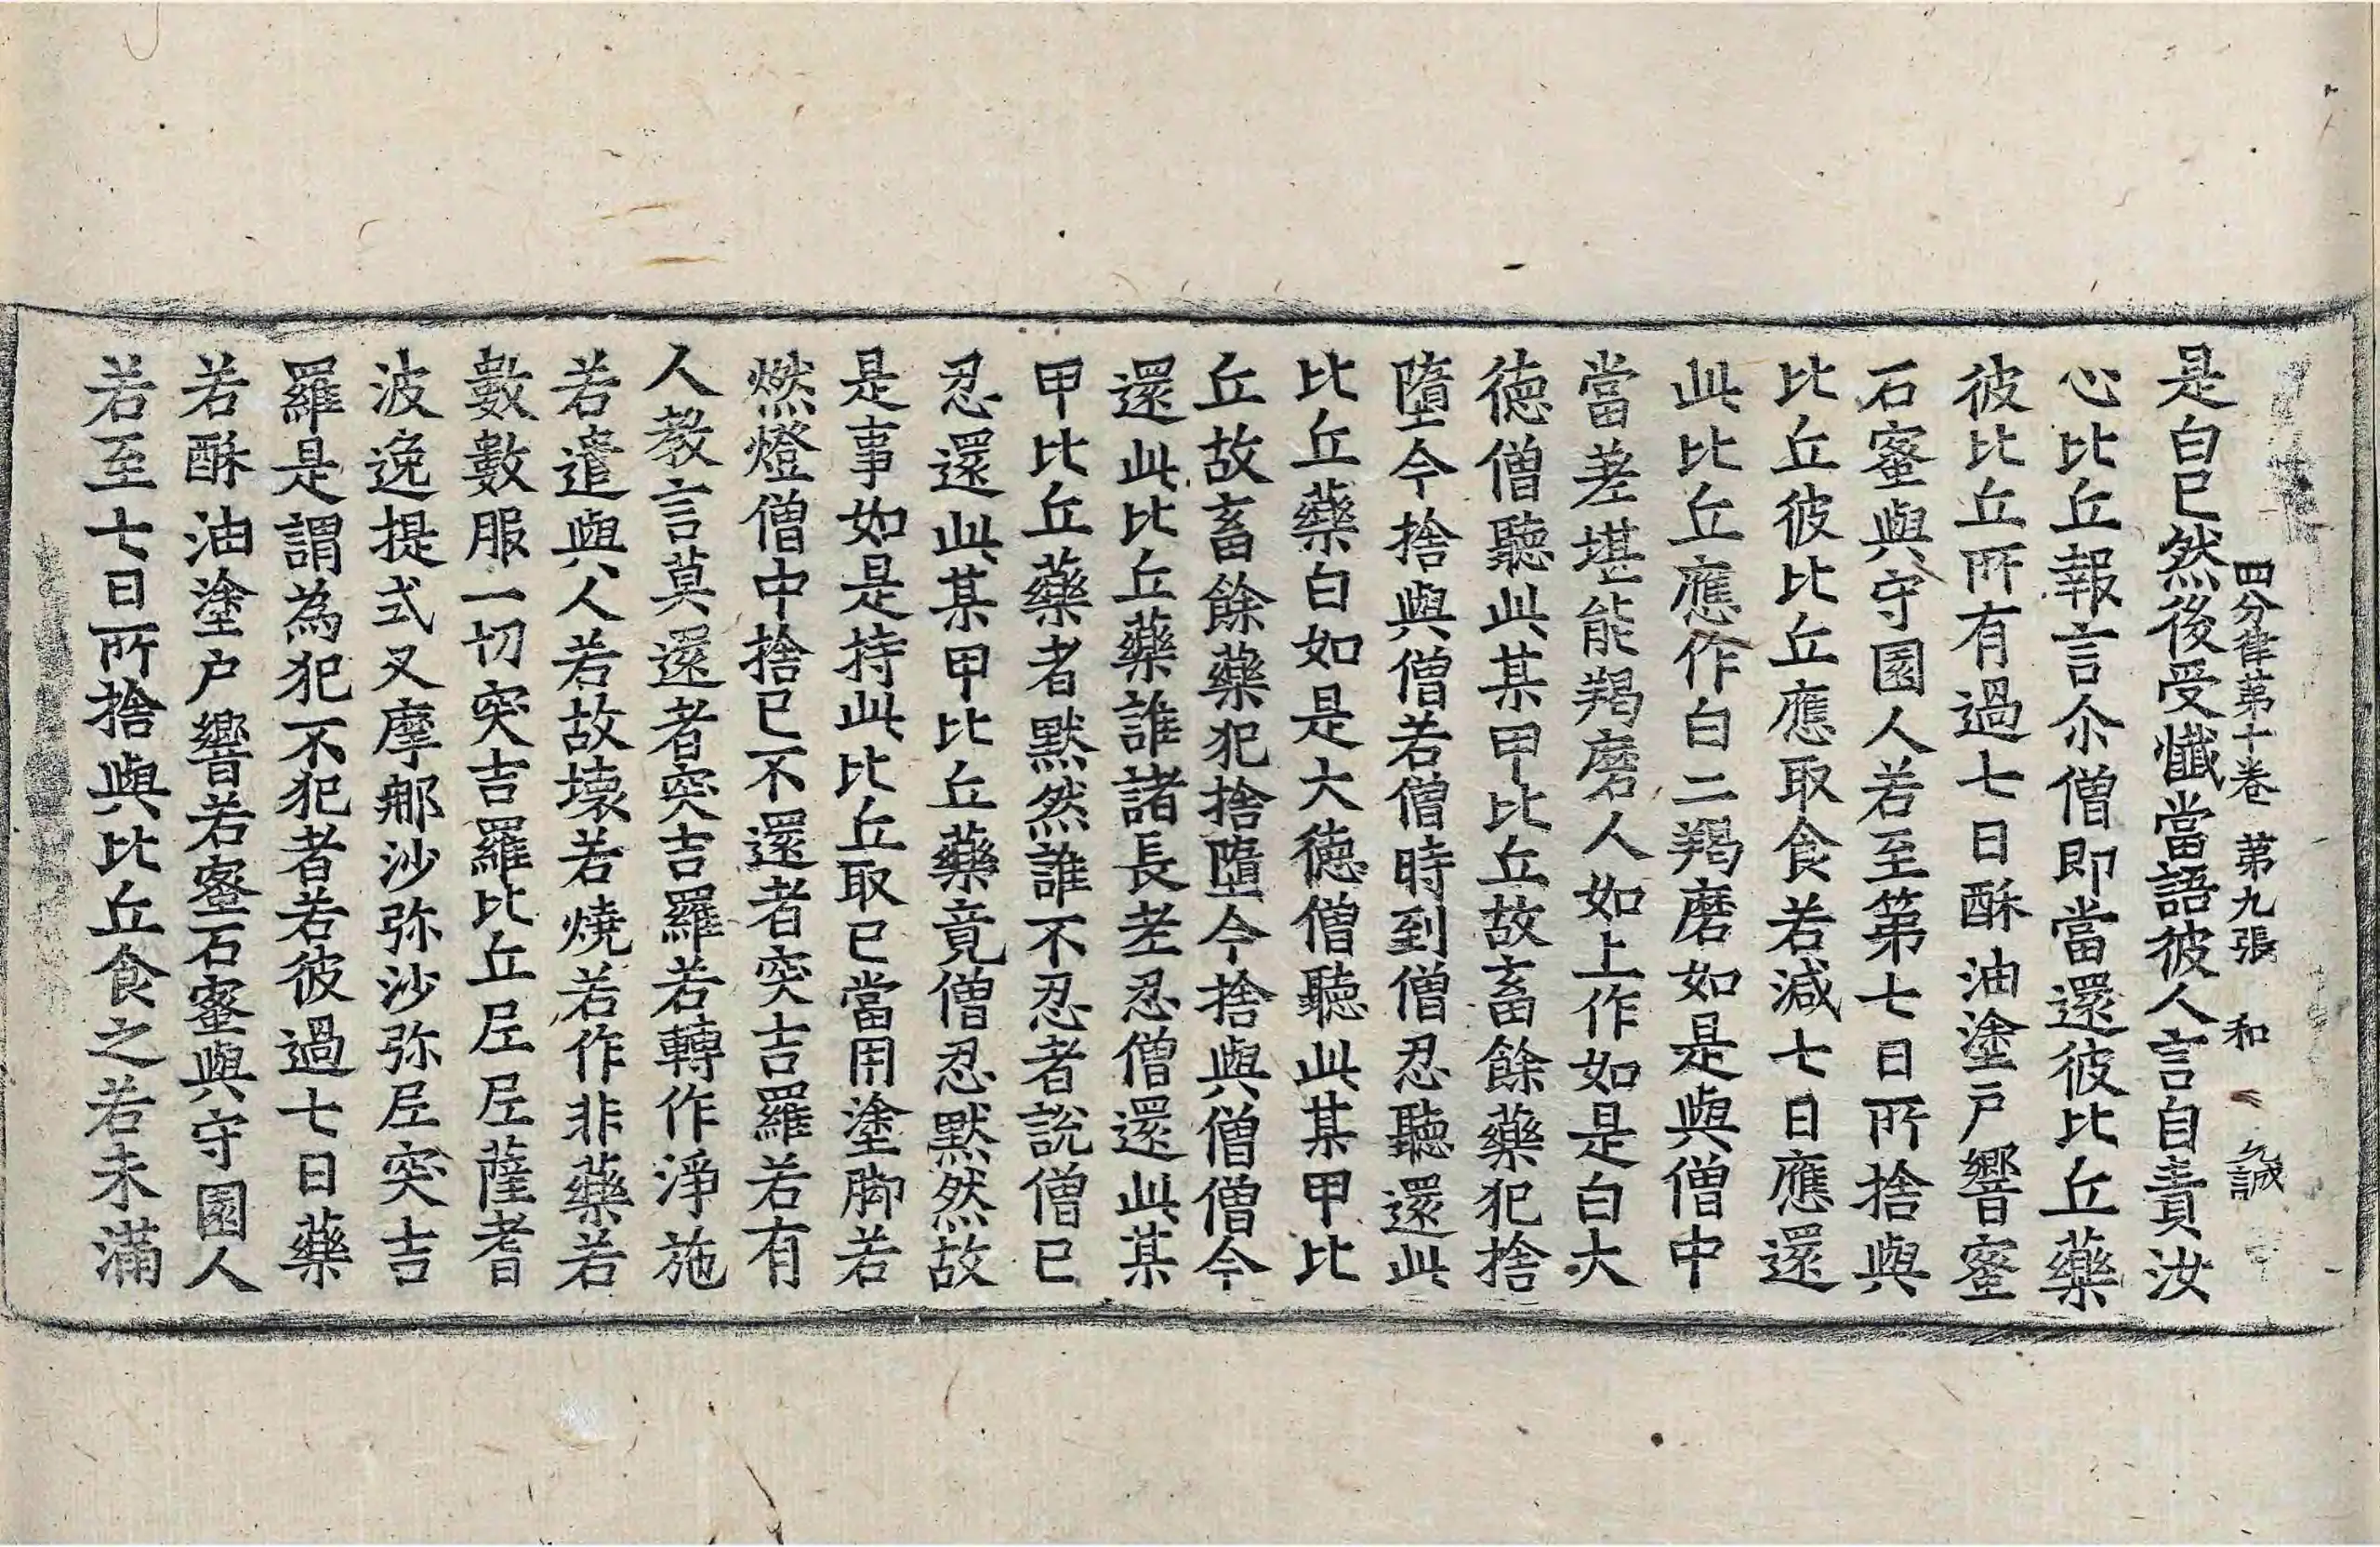 四分律第十卷 第九張 和 誠
是白已然後受懺當語彼人言自責汝
心比丘報言尒僧即當還彼比丘藥
彼比丘所有過七日酥油塗戶響蜜
石蜜與守園人若至第七日所捨與
比丘彼比丘應取食若減七日應還
此比丘應作白二羯磨如是與僧中
當差堪能羯磨人如上作如是白大
德僧聽此某甲比丘故畜餘藥犯捨
墮今捨與僧若僧時到僧忍聽還此
比丘藥白如是大德僧聽此某甲比
丘故畜餘藥犯捨墮今捨與僧僧今
還此比丘藥誰諸長老忍僧還此某
甲比丘藥者默然誰不忍者說僧已
忍還此某甲比丘藥竟僧忍默然故
是事如是持此比丘取已當用塗脚若
燃燈僧中捨已不還者突吉羅若有
人教言莫還者突吉羅若轉作淨施
若遣與人若故壞若燒若作非藥若
數數服一切突吉羅比丘尼尼薩耆
波逸提式叉摩那沙弥沙弥尼突吉
羅是謂為犯不犯者若彼過七日藥
若酥油塗户響若蜜石蜜與守園人
若至七日所捨與比丘食之若未滿